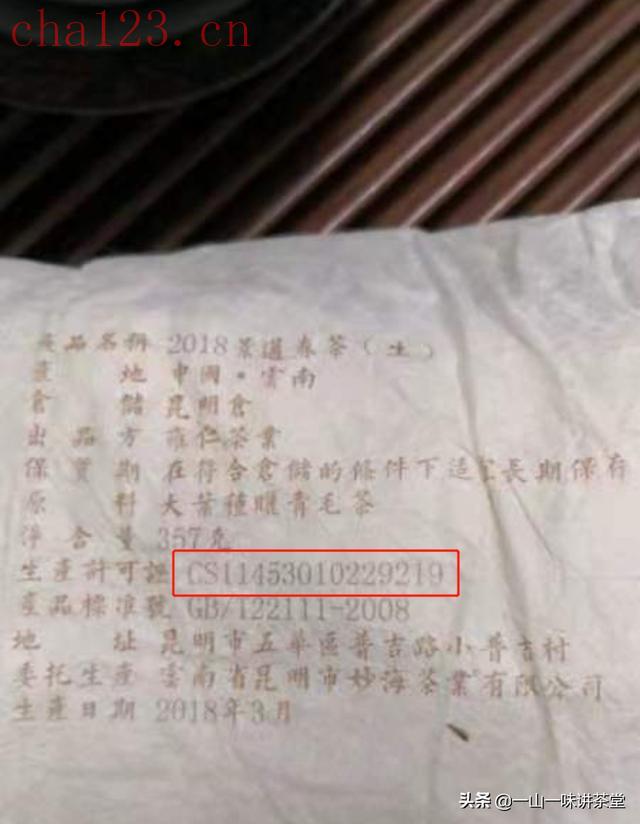 cha123.cn
產品名稱 2018景邁春茶(生)
產地 中國·雲南
倉儲 昆明倉
出品方 雍仁茶業
保質期 在符合倉儲的條件下适宜長期保存
原料 大葉種曬青毛茶
淨含量 357克
生產許可證 CS11453010229219
產品標准號 GB/T22111-2008
地址 昆明市五華區普吉路小普吉村
委托生產 雲南省昆明市妙海茶業有限公司
生產日期 2018年3月
头条 @一山一味讲茶堂